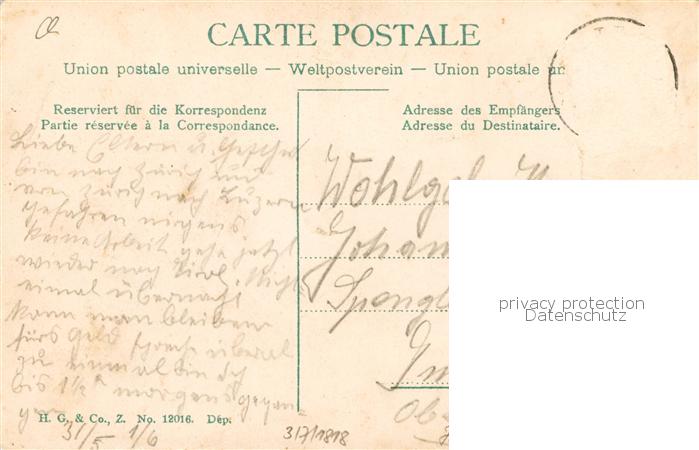 CARTE POSTALE
Union postale universelle — Weltpostverein — Union postale un
Reserviert für die Korrespondenz
Partie réservée à la Correspondance.
Adresse des Empfängers
Adresse du Destinataire.
Liebe Eltern u.
bin nach Zürich
von Zürich nach Luzern
gefahren nirgens
keine Arbeit gehe jetzt
wieder nach Tirol. Nicht
einmal übernacht
kann man bleiben
fürs Geld überal
zu einmal bin ich
bis 1½ morgens gegan-
gen
31/5 1/6
Wohlgeb. H
Johan
Spengl
Im
Ob
H. G. & Co., Z. No. 12016. Dép.
3/7/1818
privacy protection
Datenschutz